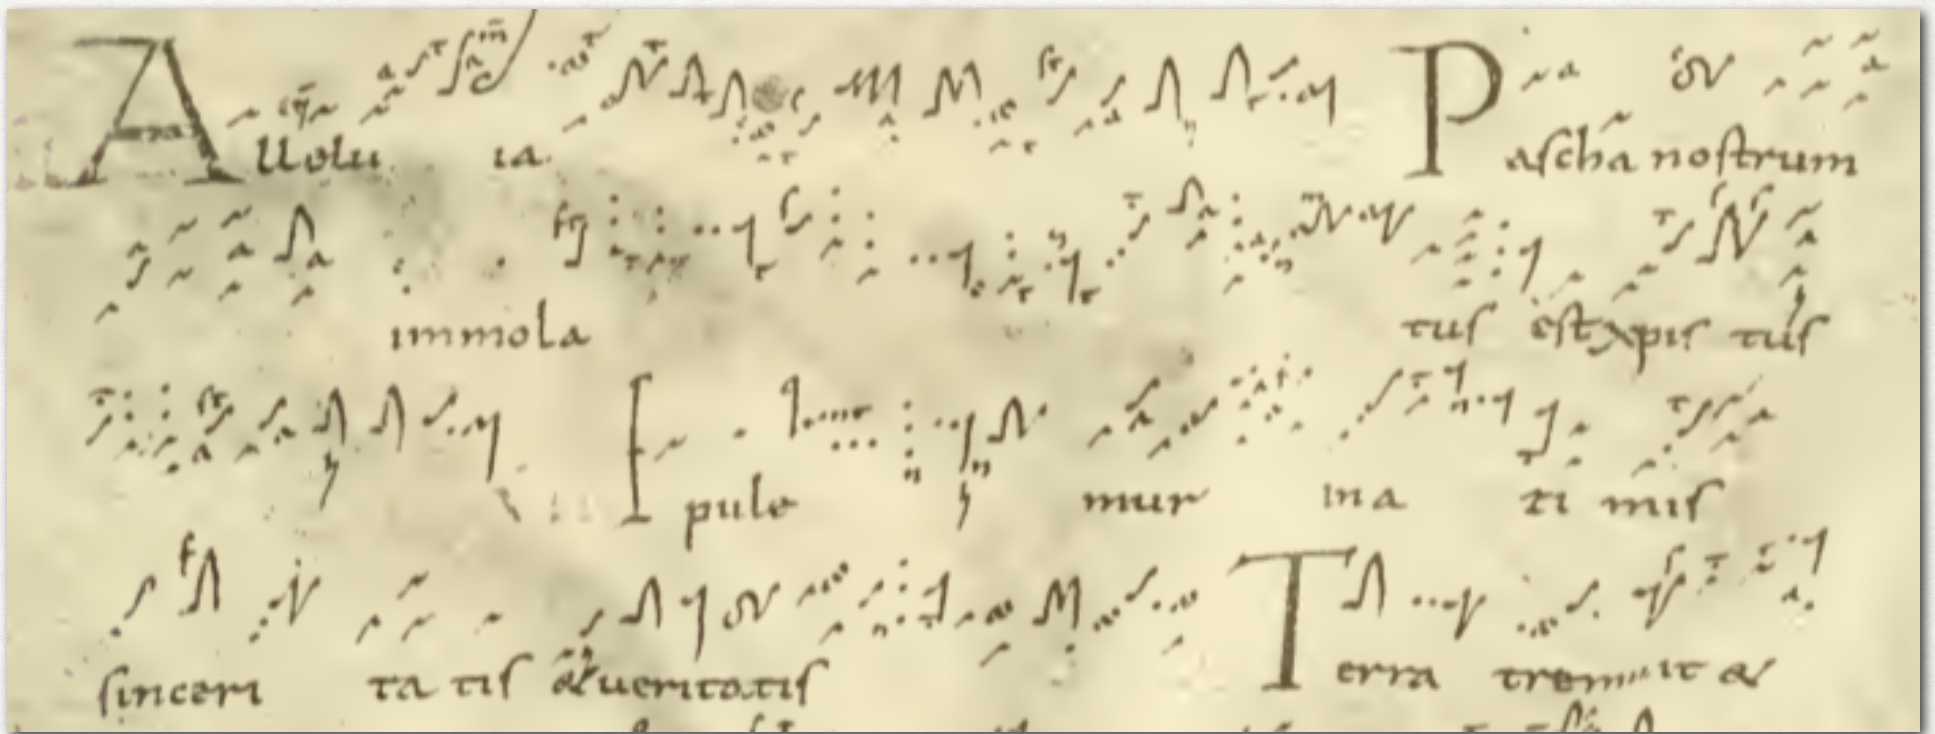 Alleluia Pascha nostrum
immola tus est xpis tus
Epule mur in a zi mis
sinceri ta tis & ueritatis Terra tremuit &